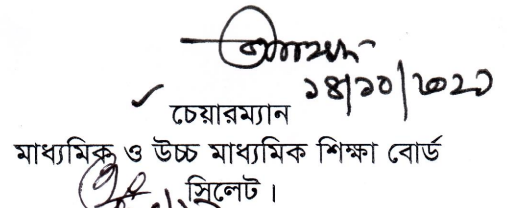 ১৪/১০/২০২১
চেয়ারম্যান
মাধ্যমিক ও উচ্চ মাধ্যমিক শিক্ষা বোর্ড
সিলেট।